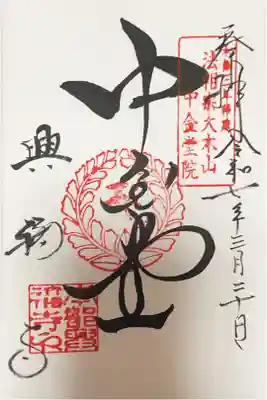 奉拝 令和七年三月三十日
法相宗大本山
中金堂院
中金堂
興福寺